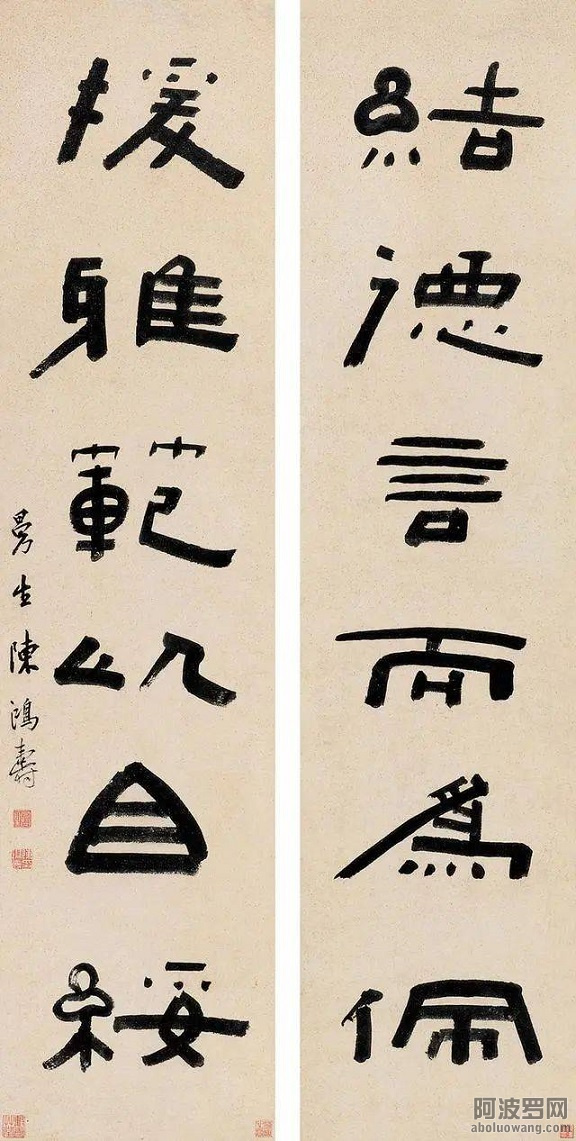 結德言而爲佩
援雅範以自綏
曼生陳鴻壽
阿波罗网
aboluowang.com